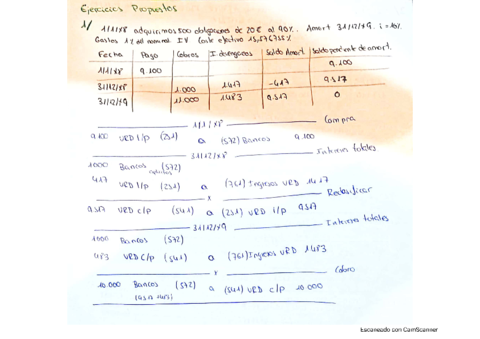 Ejercicios Propuestos
1/ 1/1/X8 adquirimos 500 obligaciones de 20€ al 90%. Amort 31/12/X9. i=10%
Gastos 1% del nominal. IV Coste efectivo 15,5767
Fecha Pago Cobros I. devengados Saldo Amort Saldo pendiente de amort.
1/1/X8 9.100 9.100
31/12/X8 1.000 1.417 -417 9.517
31/12/X9 11.000 1.483 9.517 0
1/1/X8 Compra
9.100 VRD l/p (251) a (572) Bancos 9.100
31/12/X8 Intereses totales
1000 Bancos (572)
417 VRD l/p (251) a (761) Ingresos VRD 1417
x Reclasificar
9517 VRD c/p (541) a (251) VRD l/p 9517
31/12/X9 Intereses totales
1000 Bancos (572)
483 VRD c/p (541) a (761) Ingresos VRD 1483
x Cobro
10.000 Bancos (572) a (541) VRD c/p 10.000
Escaneado con CamScanner